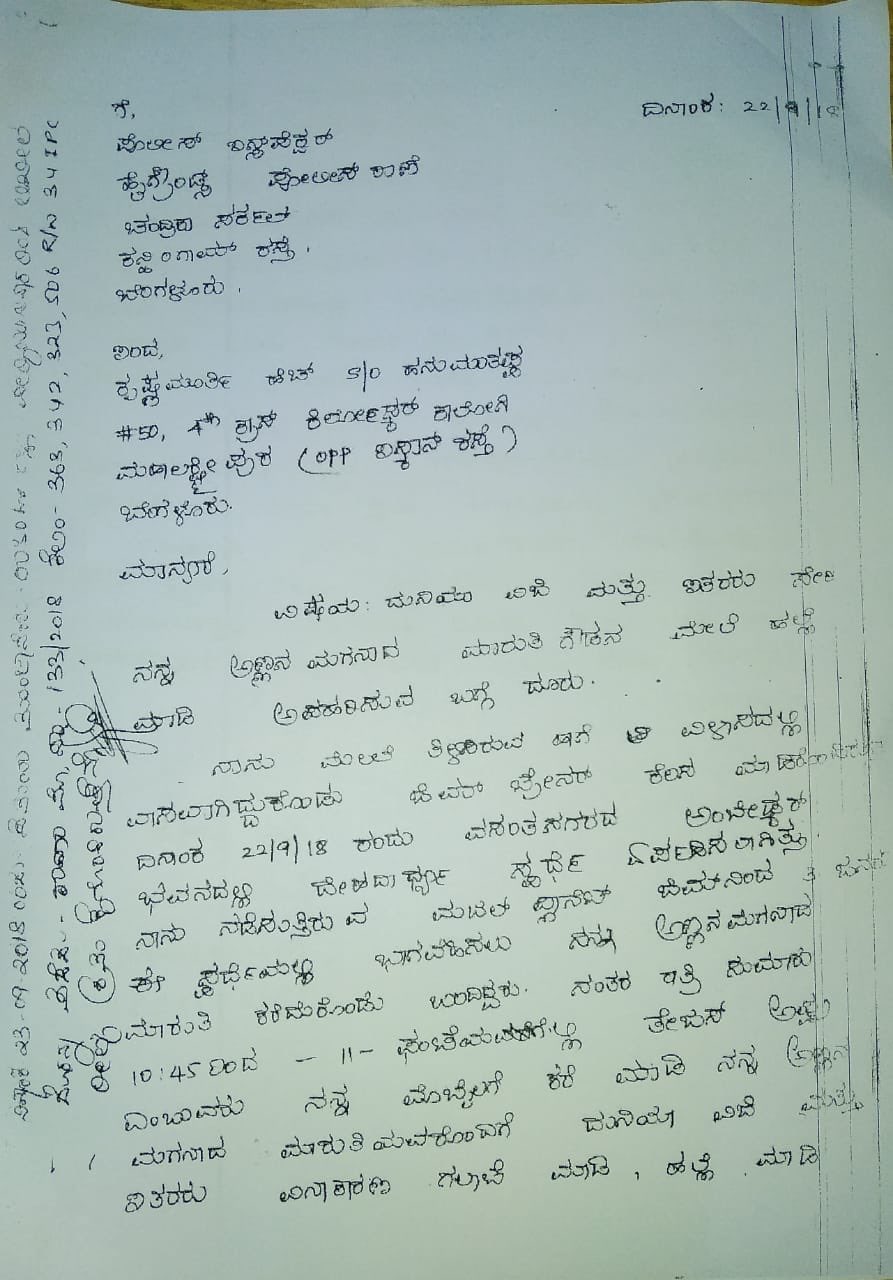 ಗೆ,
ದಿನಾಂಕ: 22/9/18
ಪೊಲೀಸ್ ಇನ್ಸ್‌ಪೆಕ್ಟರ್
ಹೈಗ್ರೌಂಡ್ಸ್ ಪೋಲೀಸ್ ಠಾಣೆ
ಚಂದ್ರಿಕಾ ಸರ್ಕಲ್
ಕನ್ನಿಂಗಾಮ್ ರಸ್ತೆ.
ಬೆಂಗಳೂರು.
ಇಂದ,
ಕೃಷ್ಣಮೂರ್ತಿ ಹೆಚ್ S/o ಹನುಮಂತಪ್ಪ
#50, 4th ಕ್ರಾಸ್ ಕಿರ್ಲೋಸ್ಕರ್ ಕಾಲೋನಿ
ಮಹಾಲಕ್ಷ್ಮೀಪುರ (opp ಇಸ್ಕಾನ್ ರಸ್ತೆ)
ಬೆಂಗಳೂರು.
ಮಾನ್ಯರೆ,
ವಿಷಯ: ದುನಿಯಾ ವಿಜಿ ಮತ್ತು ಇತರರು ಸೇರಿ
ನನ್ನ ಅಣ್ಣನ ಮಗನಾದ ಮಾರುತಿ ಗೌಡನ ಮೇಲೆ ಹಲ್ಲೆ
ಮಾಡಿ ಅಪಹರಿಸುವ ಬಗ್ಗೆ ದೂರು.
ನಾನು ಮೇಲೆ ತಿಳಿಸಿರುವ ಹಾಗೆ ಈ ವಿಳಾಸದಲ್ಲಿ
ವಾಸವಾಗಿದ್ದುಕೊಂಡು ಜಿಮ್ ಟ್ರೇನರ್ ಕೆಲಸ
ದಿನಾಂಕ 22/9/18 ರಂದು ವಸಂತನಗರದ ಅಂಬೇಡ್ಕರ್
ಭವನದಲ್ಲಿ ದೇಹದಾರ್ಢ್ಯ ಸ್ಪರ್ಧೆ ಏರ್ಪಡಿಸಲಾಗಿತ್ತು.
ನಾನು ನಡೆಸುತ್ತಿರುವ ಮಜಲ್ ಪ್ಲಾನೆಟ್ ಜಿಮ್‌ನಿಂದ 3
ಈ ಸ್ಪರ್ಧೆಯಲ್ಲಿ ಭಾಗವಹಿಸಲು ನನ್ನ ಅಣ್ಣನ ಮಗನಾದ
ಮಾರುತಿ ಕರೆದುಕೊಂಡು ಬಂದಿದ್ದರು. ನಂತರ ರಾತ್ರಿ ಸುಮಾರು
10:45 ರಿಂದ - 11 - ಘಂಟೆಯವರೆಗೆ ತೇಜಸ್
ಎಂಬುವರು ನನ್ನ ಮೊಬೈಲಗೆ ಕರೆ ಮಾಡಿ ನನ್ನ ಅಣ್ಣನ
ಮಗನಾದ ಮಾರುತಿ ದುನಿಯಾ ವಿಜಿ ಮತ್ತು
ಇತರರು ವಿನಾಕಾರಣ ಗಲಾಟೆ ಮಾಡಿ, ಹಲ್ಲೆ ಮಾಡಿ
23-09-2018 ರಂದು
133/2018 ಕಲಂ- 363, 342, 323, 506 R/w 34 IPC